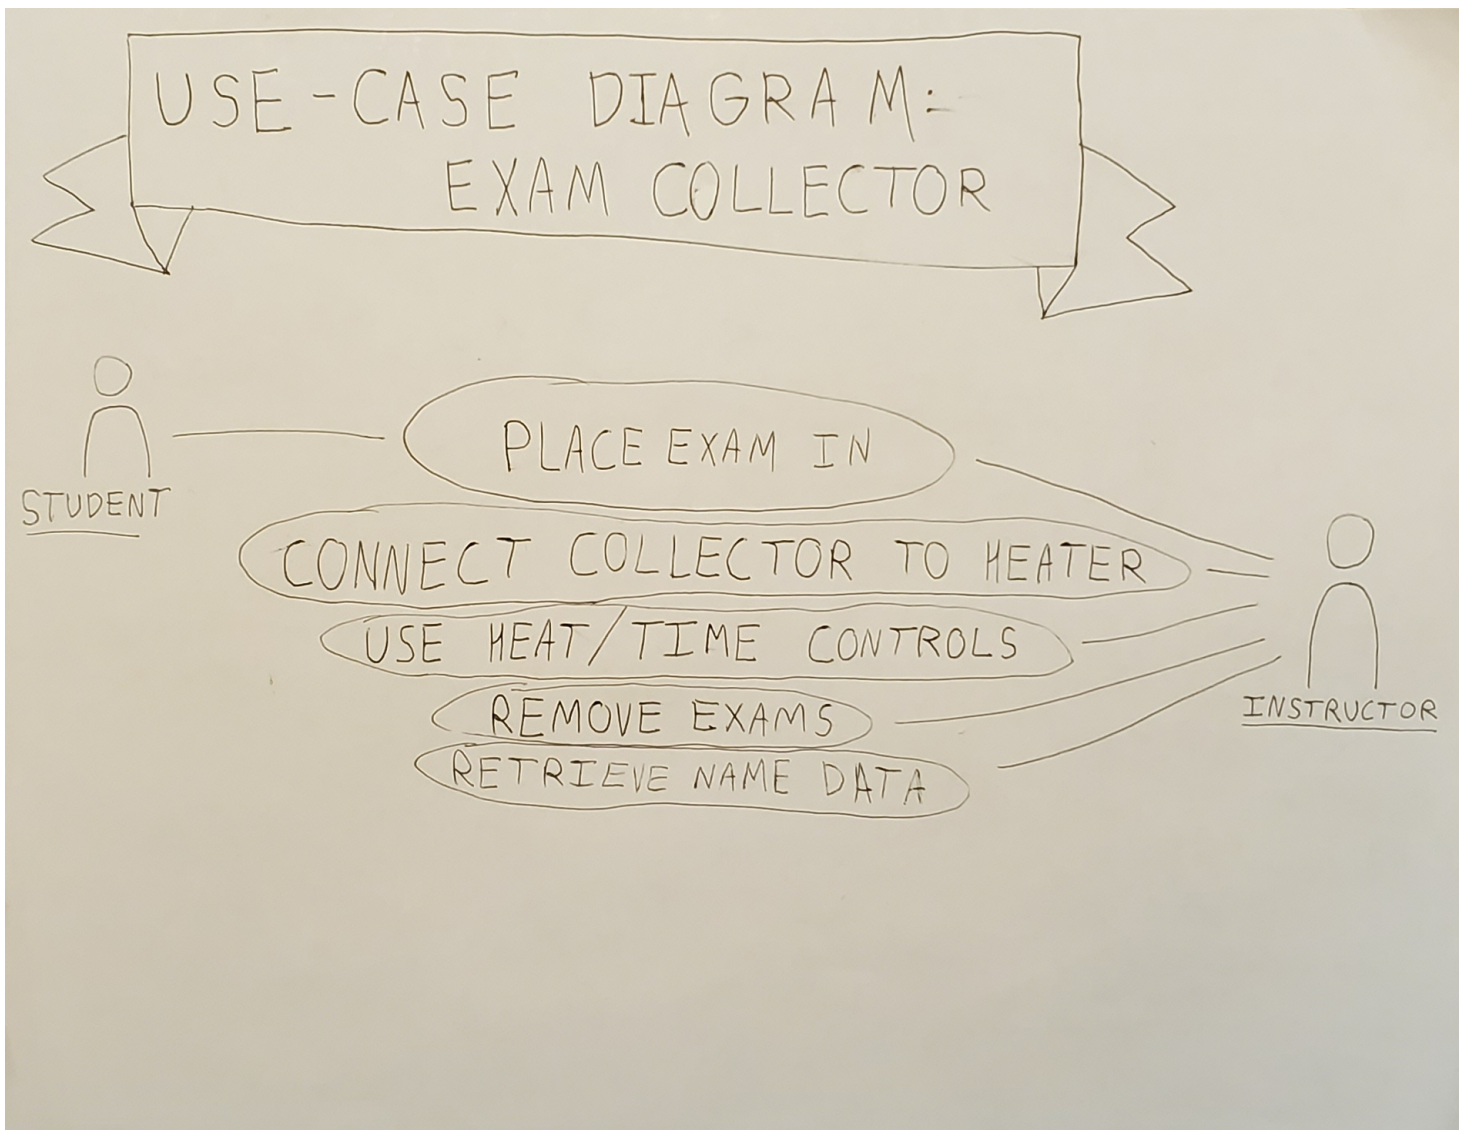 USE-CASE DIAGRAM:
EXAM COLLECTOR
STUDENT
PLACE EXAM IN
CONNECT COLLECTOR TO HEATER
USE HEAT/TIME CONTROLS
REMOVE EXAMS
RETRIEVE NAME DATA
INSTRUCTOR